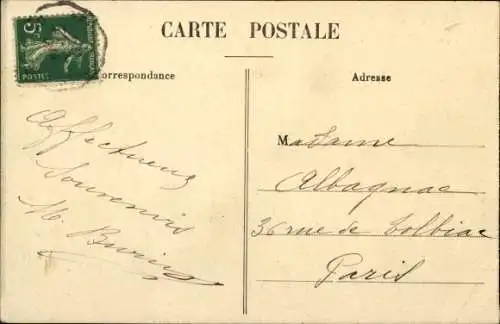 CARTE POSTALE
5c
POSTES
Correspondance
Adresse
Affectueux
Souvenirs
M.
Madame
Albagnac
36 rue de Tolbiac
Paris